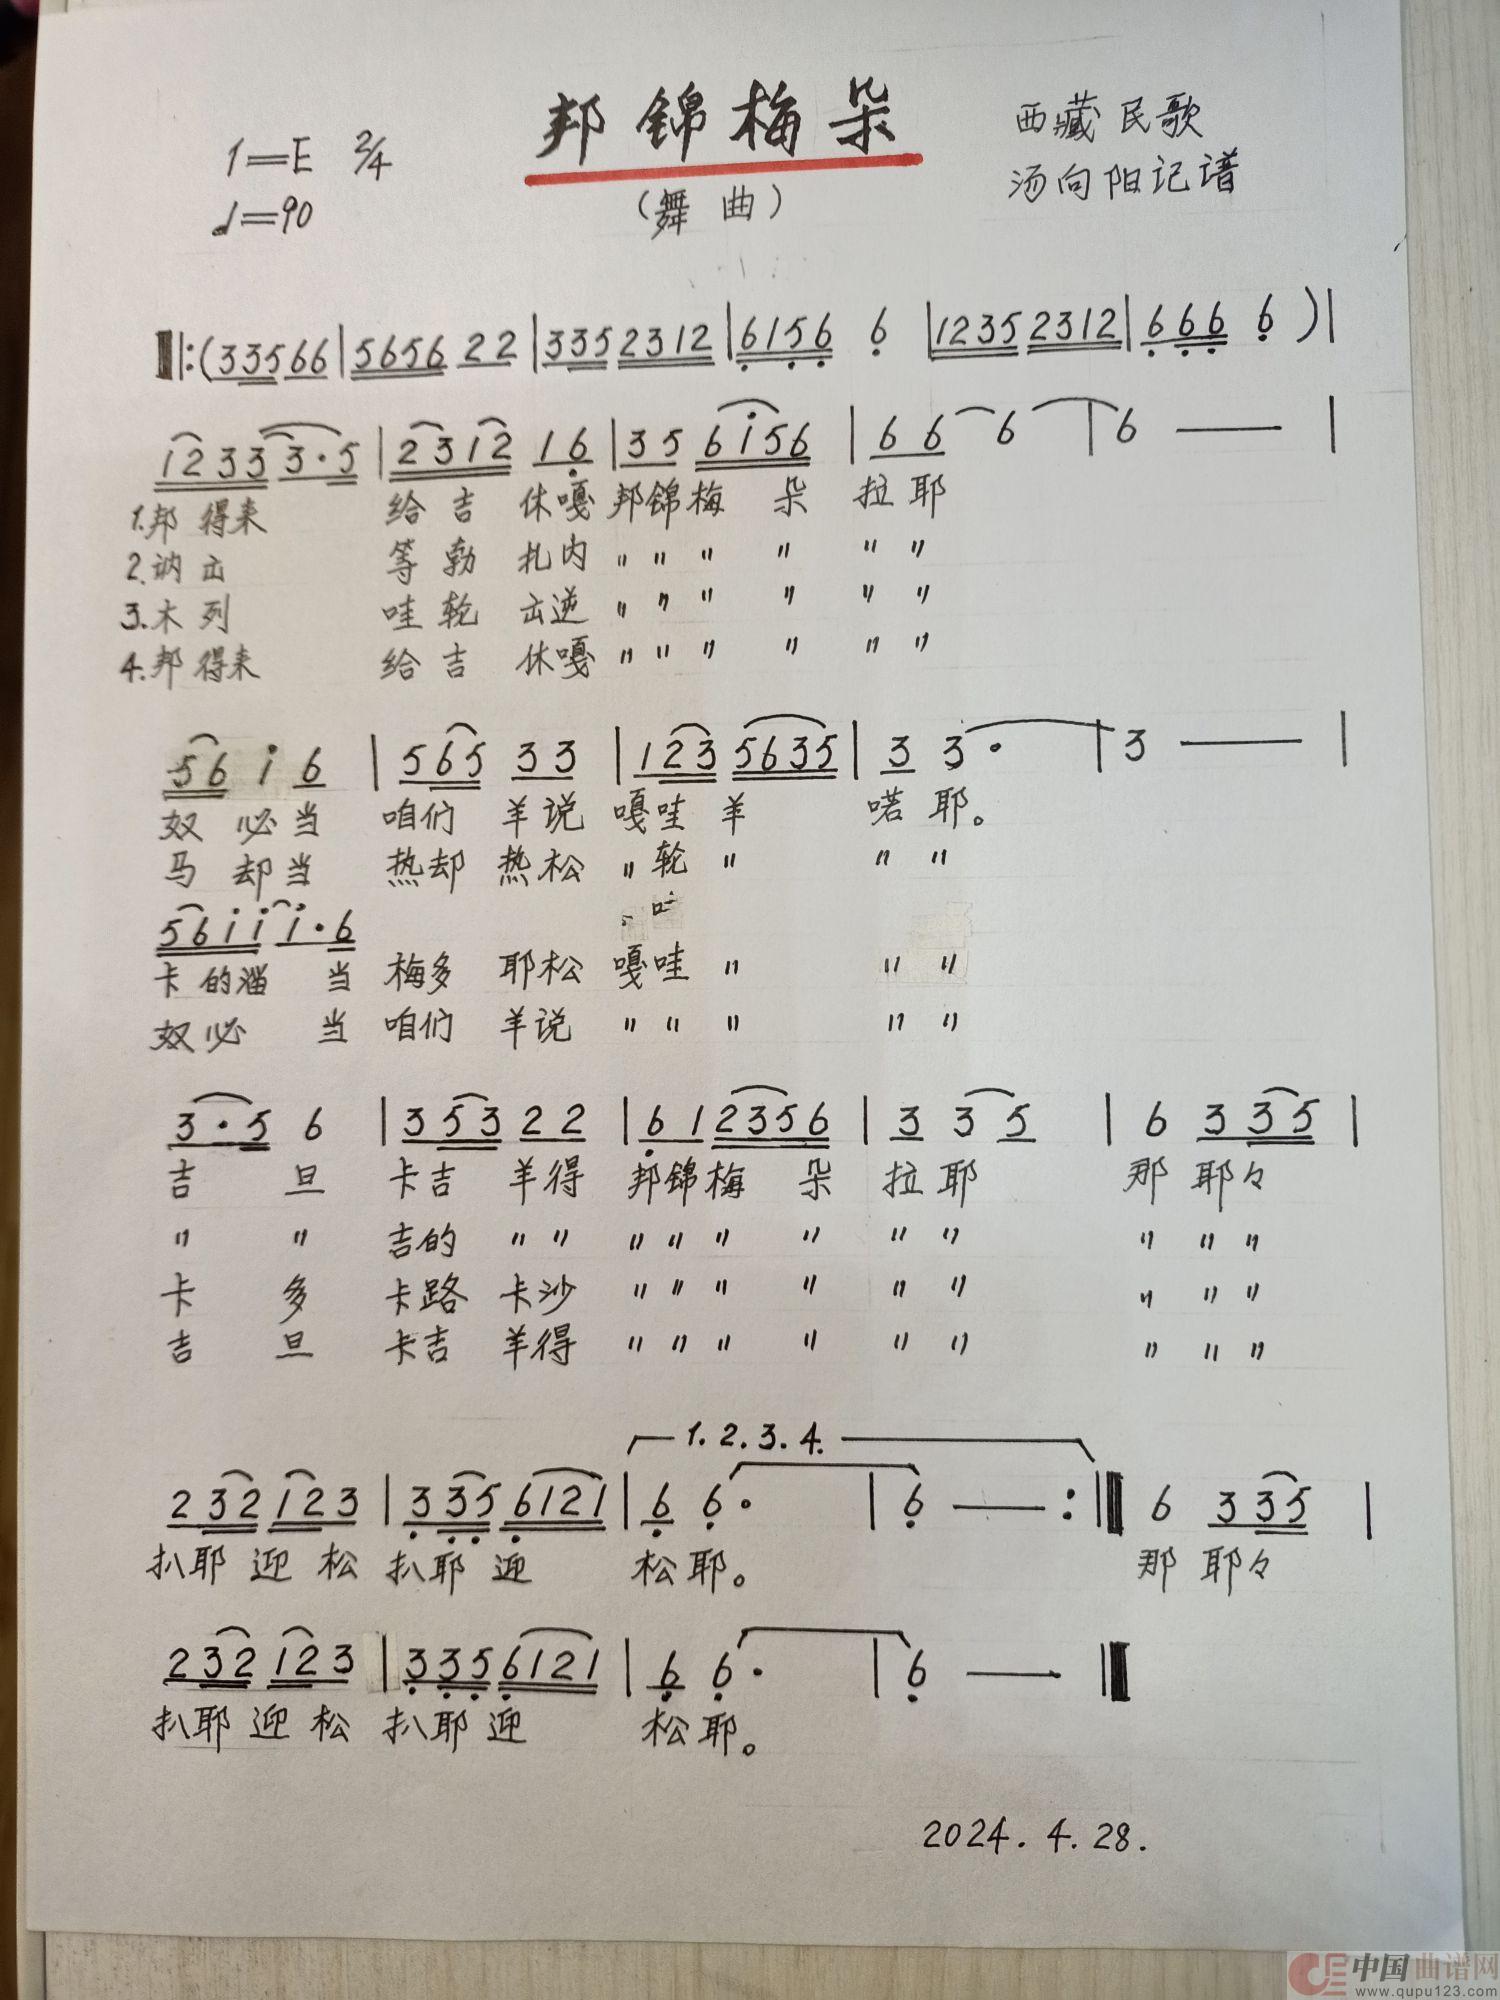 邦锦梅朵
西藏民歌
1=E 2/4
汤向阳记谱
♩=90
(舞曲)
‖:(3 3 5 6 6 | 5 6 5 6 2 2 | 3 3 5 2 3 1 2 | 6 1 5 6 6 | 1 2 3 5 2 3 1 2 | 6 6 6 6 ) |
1 2 3 3 3 · 5 | 2 3 1 2 1 6 | 3 5 6 i 5 6 | 6 6 6 | 6 — |
1.邦 得来 给 吉 休嘎 邦锦梅 朵 拉 耶
2.讷 击 等 勃 扎内 〃 〃 〃 〃 〃 〃
3.木 列 哇 轮 击逆 〃 〃 〃 〃 〃 〃
4.邦 得来 给 吉 休嘎 〃 〃 〃 〃 〃 〃
5 6 i 6 | 5 6 5 3 3 | 1 2 3 5 6 3 5 | 3 3 · | 3 — |
奴 必当 咱们 羊说 嘎哇 羊 喏 耶。
马 却当 热却 热松 〃 轮 〃 〃 〃
5 6 i i i · 6
卡 的淄 当 梅多 耶松 嘎哇 〃 〃 〃
奴必 当 咱们 羊说 〃 〃 〃 〃 〃
3 · 5 6 | 3 5 3 2 2 | 6 1 2 3 5 6 | 3 3 5 | 6 3 3 5 |
吉 旦 卡吉 羊得 邦锦梅 朵 拉 耶 那 耶々
〃 〃 吉的 〃 〃 〃 〃 〃 〃 〃 〃 〃 〃 〃
卡 多 卡路 卡沙 〃 〃 〃 〃 〃 〃 〃 〃 〃
吉 旦 卡吉 羊得 〃 〃 〃 〃 〃 〃 〃 〃 〃
1. 2. 3. 4.
2 3 2 1 2 3 | 3 3 5 6 1 2 1 | 6 6 · | 6 — :‖ 6 3 3 5 |
扒耶 迎 松 扒耶 迎 松耶。 那 耶々
2 3 2 1 2 3 | 3 3 5 6 1 2 1 | 6 6 · | 6 — ‖
扒耶 迎 松 扒耶 迎 松耶。
2024.4.28.
中国曲谱网
www.qupu123.com